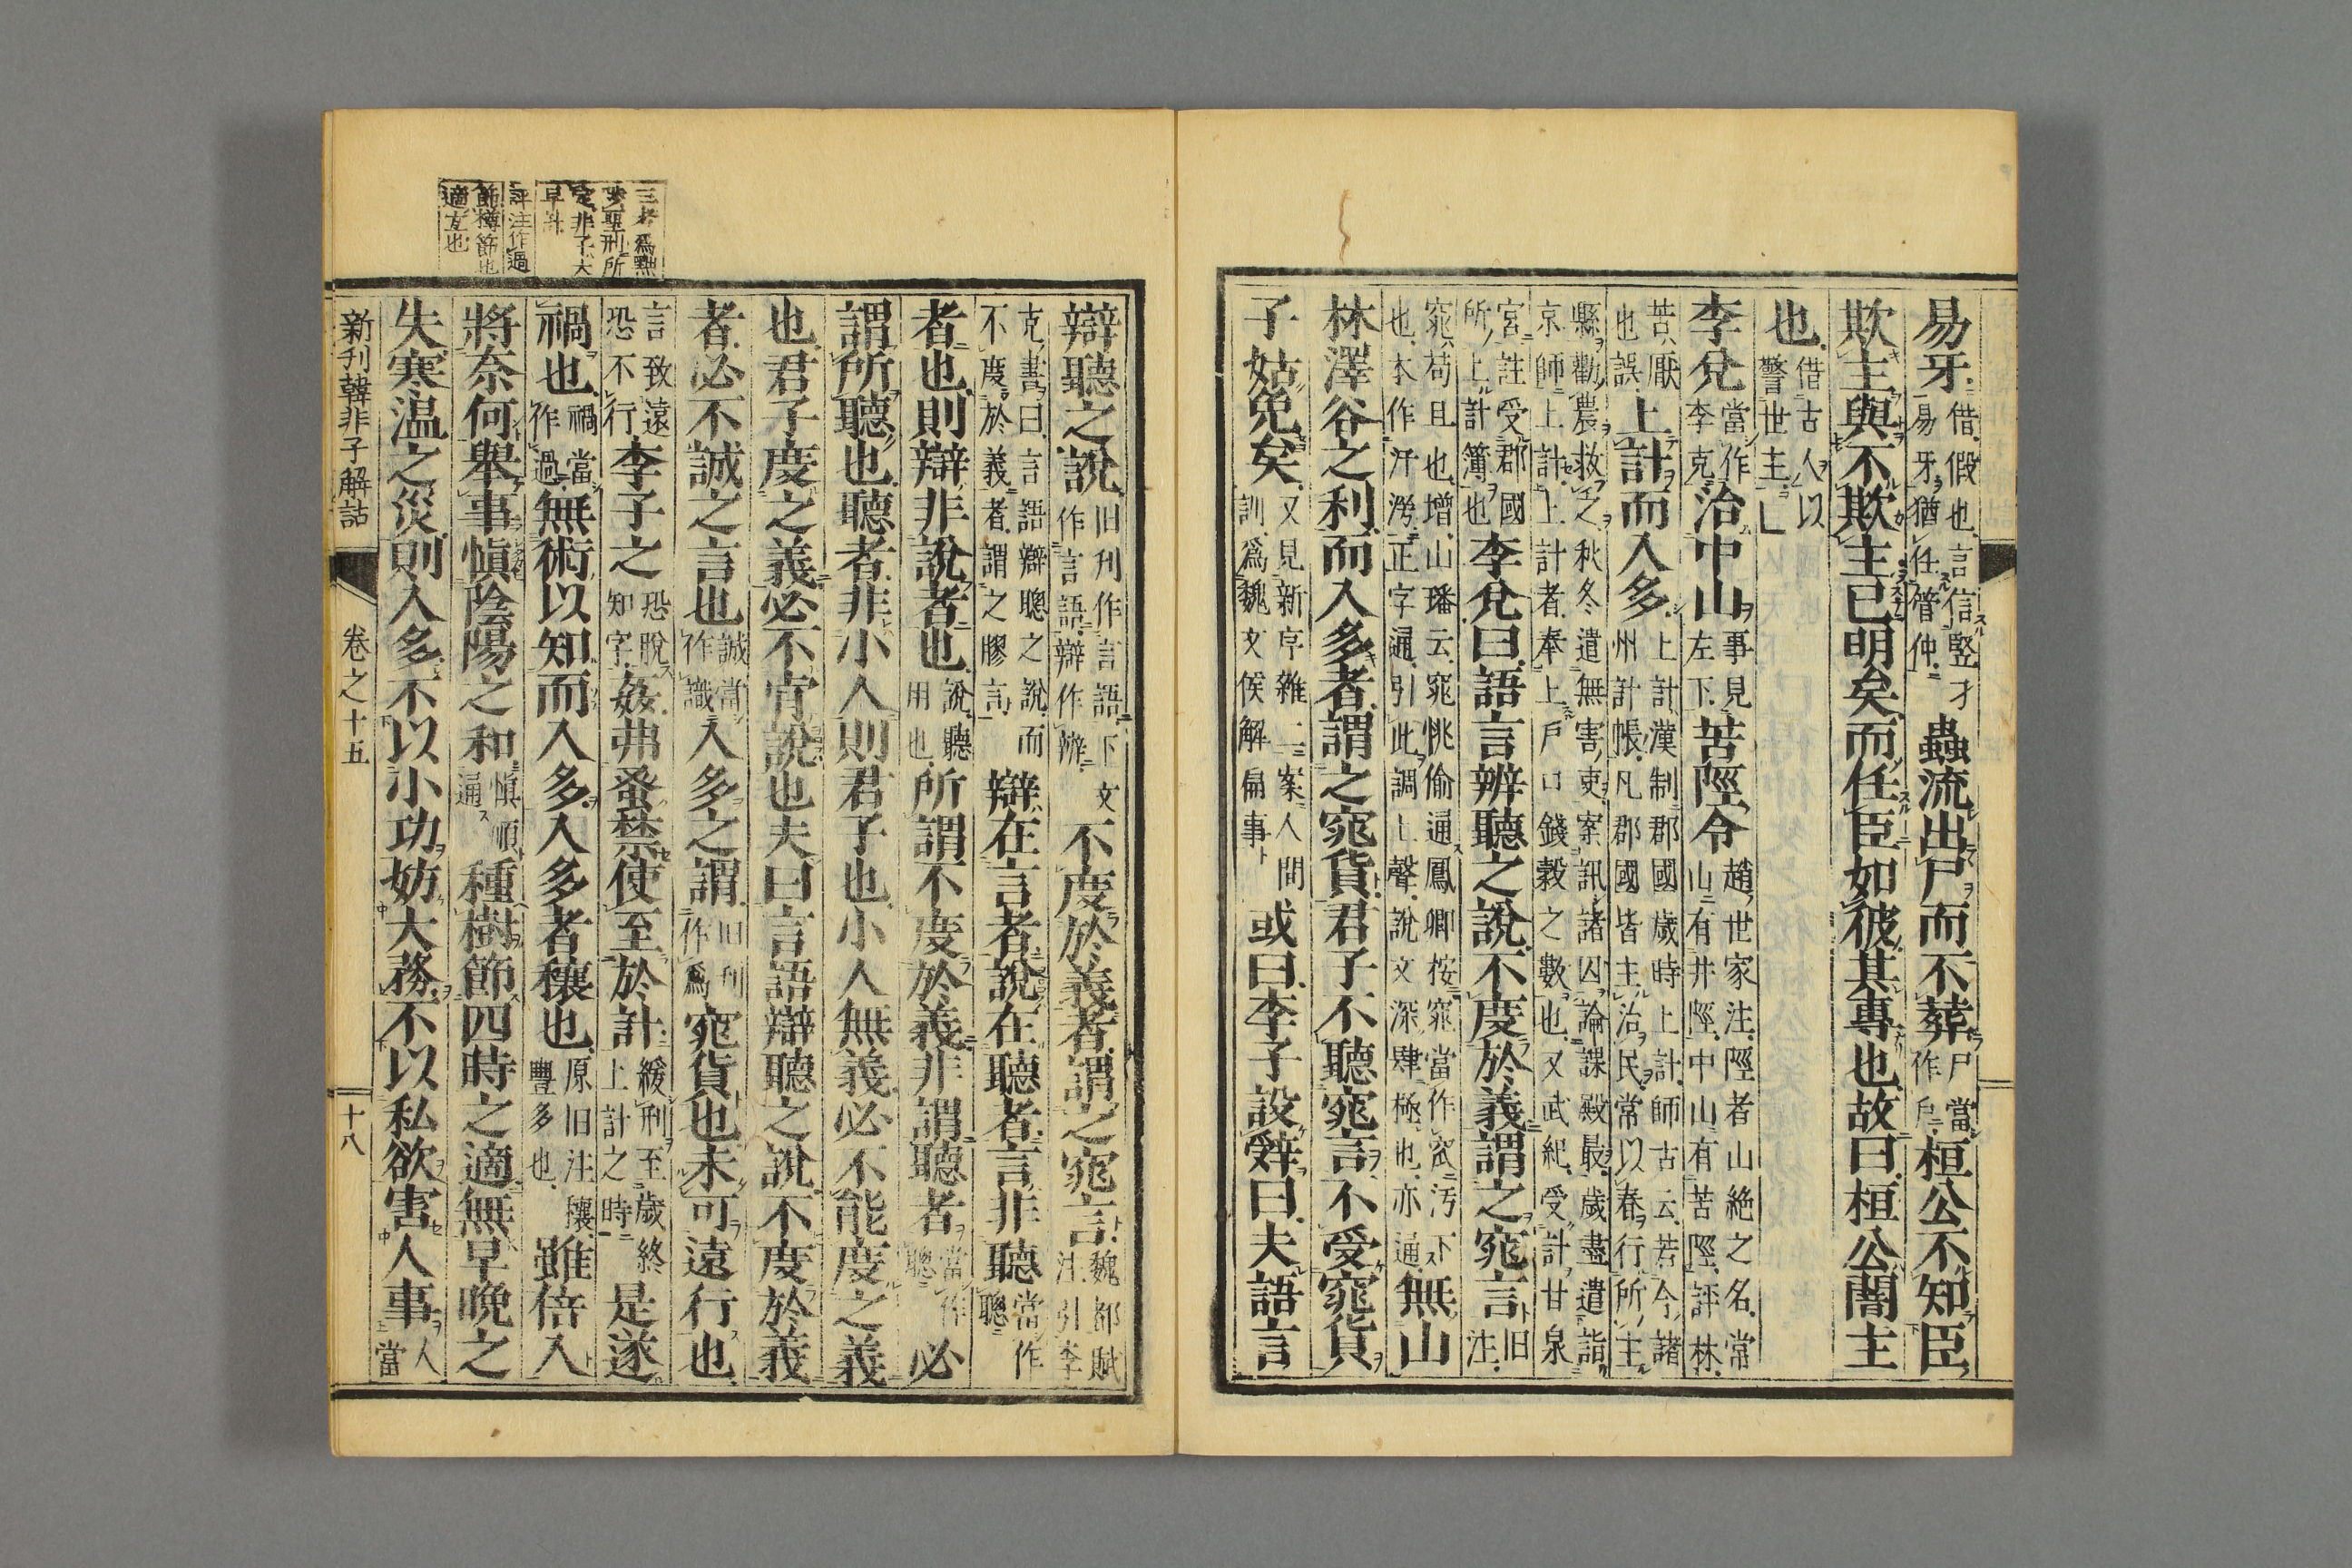 易牙借假也言信竪才易牙猶任管仲蟲流出尸而不葬尸當作戶桓公不知臣
欺主與不欺主已明矣而任臣如彼其專也故曰桓公闇主
也借古人以警世主
李兌當作李克治中山事見左下苦陘令趙世家注陘者山絶之名常山有井陘中山有苦陘評林
苦厭也誤上計而入多上計漢制郡國歲時上計師古云若今諸州計帳凡郡國皆主治民常以春行所主
縣勸農救之秋冬遣無害吏案訊諸囚論課殿最歲盡遣詣京師上計上計者奉上戶口錢穀之數也又武紀受計甘泉
宮註受郡國所上計簿也李兌曰語言辨聽之說不度於義謂之窕言旧注
窕苟且也增山璠云窕恌偷通鳳卿按窕當作窊汚下也本作汙澇正字通引此調上聲說文深肆極也亦通無山
林澤谷之利而入多者謂之窕貨君子不聽窕言不受窕貨
子姑免矣又見新序雜二案人間訓爲魏文侯解扁事或曰李子設辭曰夫語言
辯聽之說旧刋作言語下文作言語辯作辨不度於義者謂之窕言魏都賦注引李
克書曰言語辯聰之說而不度於義者謂之膠言辯在言者說在聽者言非聽當作聰
者也則辯非說者也說聽用也所謂不度於義非謂聽者當作聰必
謂所聽也聽者非小人則君子也小人無義必不能度之義
也君子度之義必不肯說也夫曰言語辯聽之說不度於義
者必不誠之言也誠當作識入多之謂旧刋作爲窕貨也未可遠行也
言致遠恐不行李子之恐脫知字姦弗蚤禁使至於計緩刑至歲終上計之時是遂
禍也禍當作過無術以知而入多入多者穰也原旧注穰豐多也雖倍入
將奈何舉事愼陰陽之和愼順通種樹節四時之適無早晚之
失寒温之災則入多不以小功妨大務不以私欲害人事人當
三者爲黜
所
定非子大
早計
評注作過
節樽節也
適互也
新刋韓非子解詁
卷之十五
十八